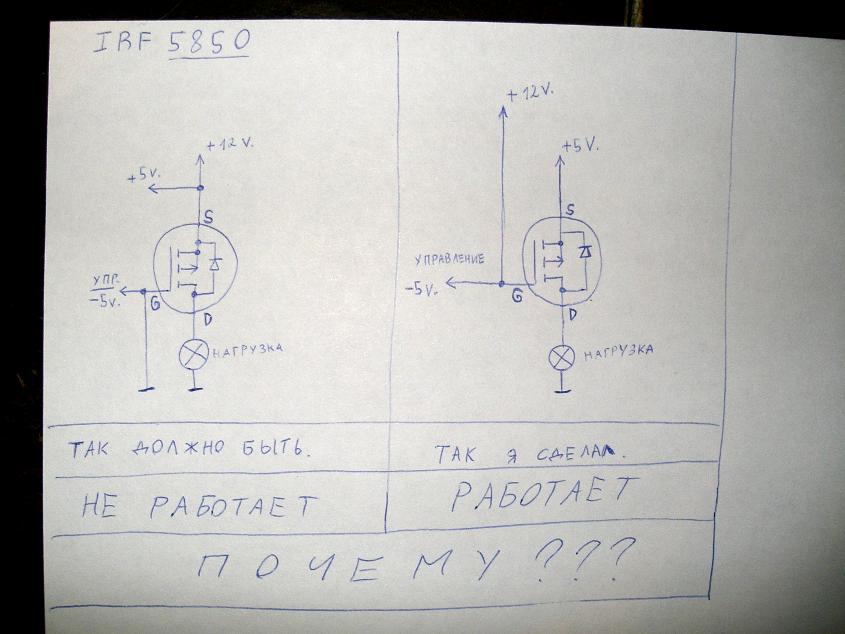 IRF 5850
+12V.
+5V.
S
УПР.
-5V.
G
D
НАГРУЗКА
+12V.
+5V.
S
УПРАВЛЕНИЕ
-5V.
G
D
НАГРУЗКА
ТАК ДОЛЖНО БЫТЬ.
ТАК Я СДЕЛАЛ.
НЕ РАБОТАЕТ
РАБОТАЕТ
ПОЧЕМУ???